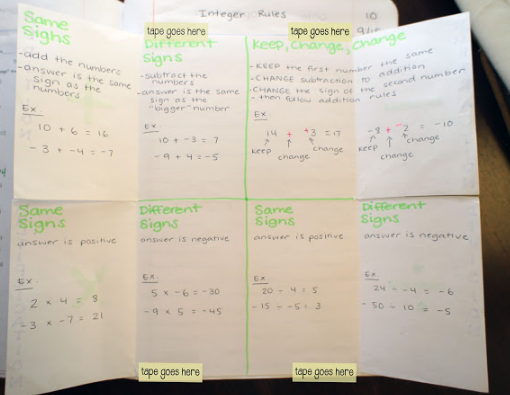 Integer Rules
10
tape goes here
tape goes here
Same
Signs
-add the numbers
-answer is the same
sign as the
numbers
Ex.
10 + 6 = 16
-3 + -4 = -7
Different
Signs
-subtract the
numbers
-answer is the same
sign as the
"bigger" number
Ex.
10 + -3 = 7
-9 + 4 = -5
Keep, Change, Change
-KEEP the first number the same
-CHANGE subtraction to addition
-CHANGE the sign of the second number
-then follow addition rules
Ex.
14 + +3 = 17
keep
change
change
-8 + -2 = -10
keep
change
change
Same
Signs
answer is positive
Ex.
2 x 4 = 8
-3 x -7 = 21
Different
Signs
answer is negative
Ex.
5 x -6 = -30
-9 x 5 = -45
Same
Signs
answer is positive
Ex.
20 ÷ 4 = 5
-15 ÷ -5 = 3
Different
Signs
answer is negative
Ex.
24 ÷ -4 = -6
-50 ÷ 10 = -5
tape goes here
tape goes here